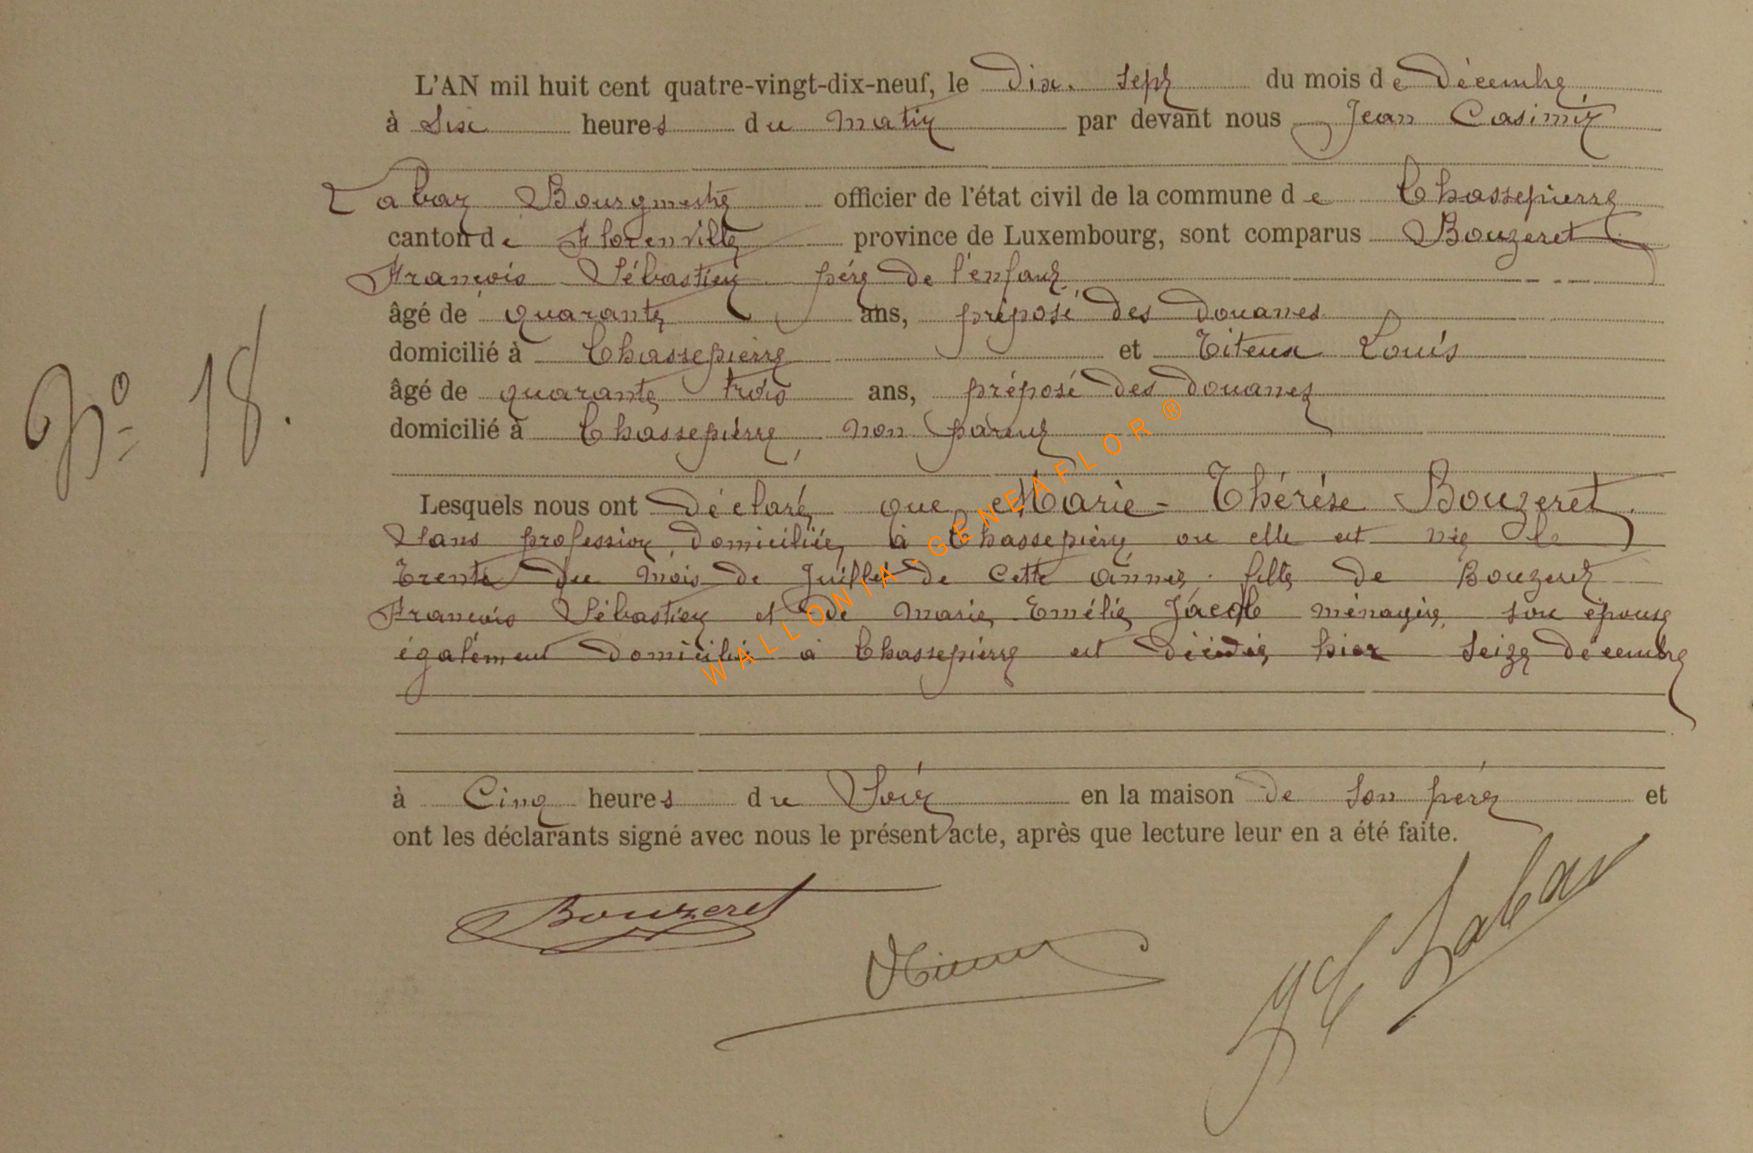 L'AN mil huit cent quatre-vingt-dix-neuf, le Dix-sept du mois de Décembre
à Six heures du Matin par devant nous Jean Casimir
Labar Bourgmestre officier de l'état civil de la commune de Chassepierre
canton de Florenville province de Luxembourg, sont comparus Bouzeret
François Sébastien père de l'enfant
âgé de quarante ans, préposé des douanes
domicilié à Chassepierre et Titeux Louis
âgé de quarante trois ans, préposé des douanes
domicilié à Chassepierre, non parent
Nº 18.
Lesquels nous ont Déclaré que Marie-Thérèse Bouzeret
Sans profession, domiciliée à Chassepierre ou elle est née le
Trente du mois de Juillet de cette année. fille de Bouzeret
François Sébastien et de Marie Emélie Jacob ménagère, son épouse
également domiciliée à Chassepierre est décédée hier seize décembre
à Cinq heures du Soir en la maison de son père et
ont les déclarants signé avec nous le présent acte, après que lecture leur en a été faite.
Bouzeret
JC Labar
WALLONIA-GENEAFLOR ®